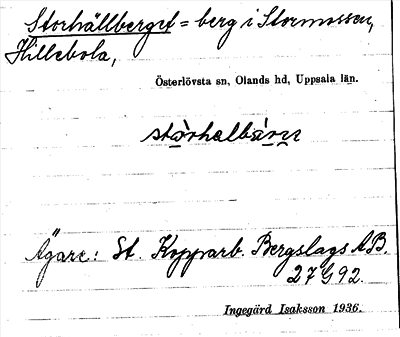 Storhällberget = berg i Stormossen,
Hillebola,
Österlövsta sn, Olands hd, Uppsala län.
Ägare: St. Kopparb. Bergslags AB.
27G92.
Ingegärd Isaksson 1936.